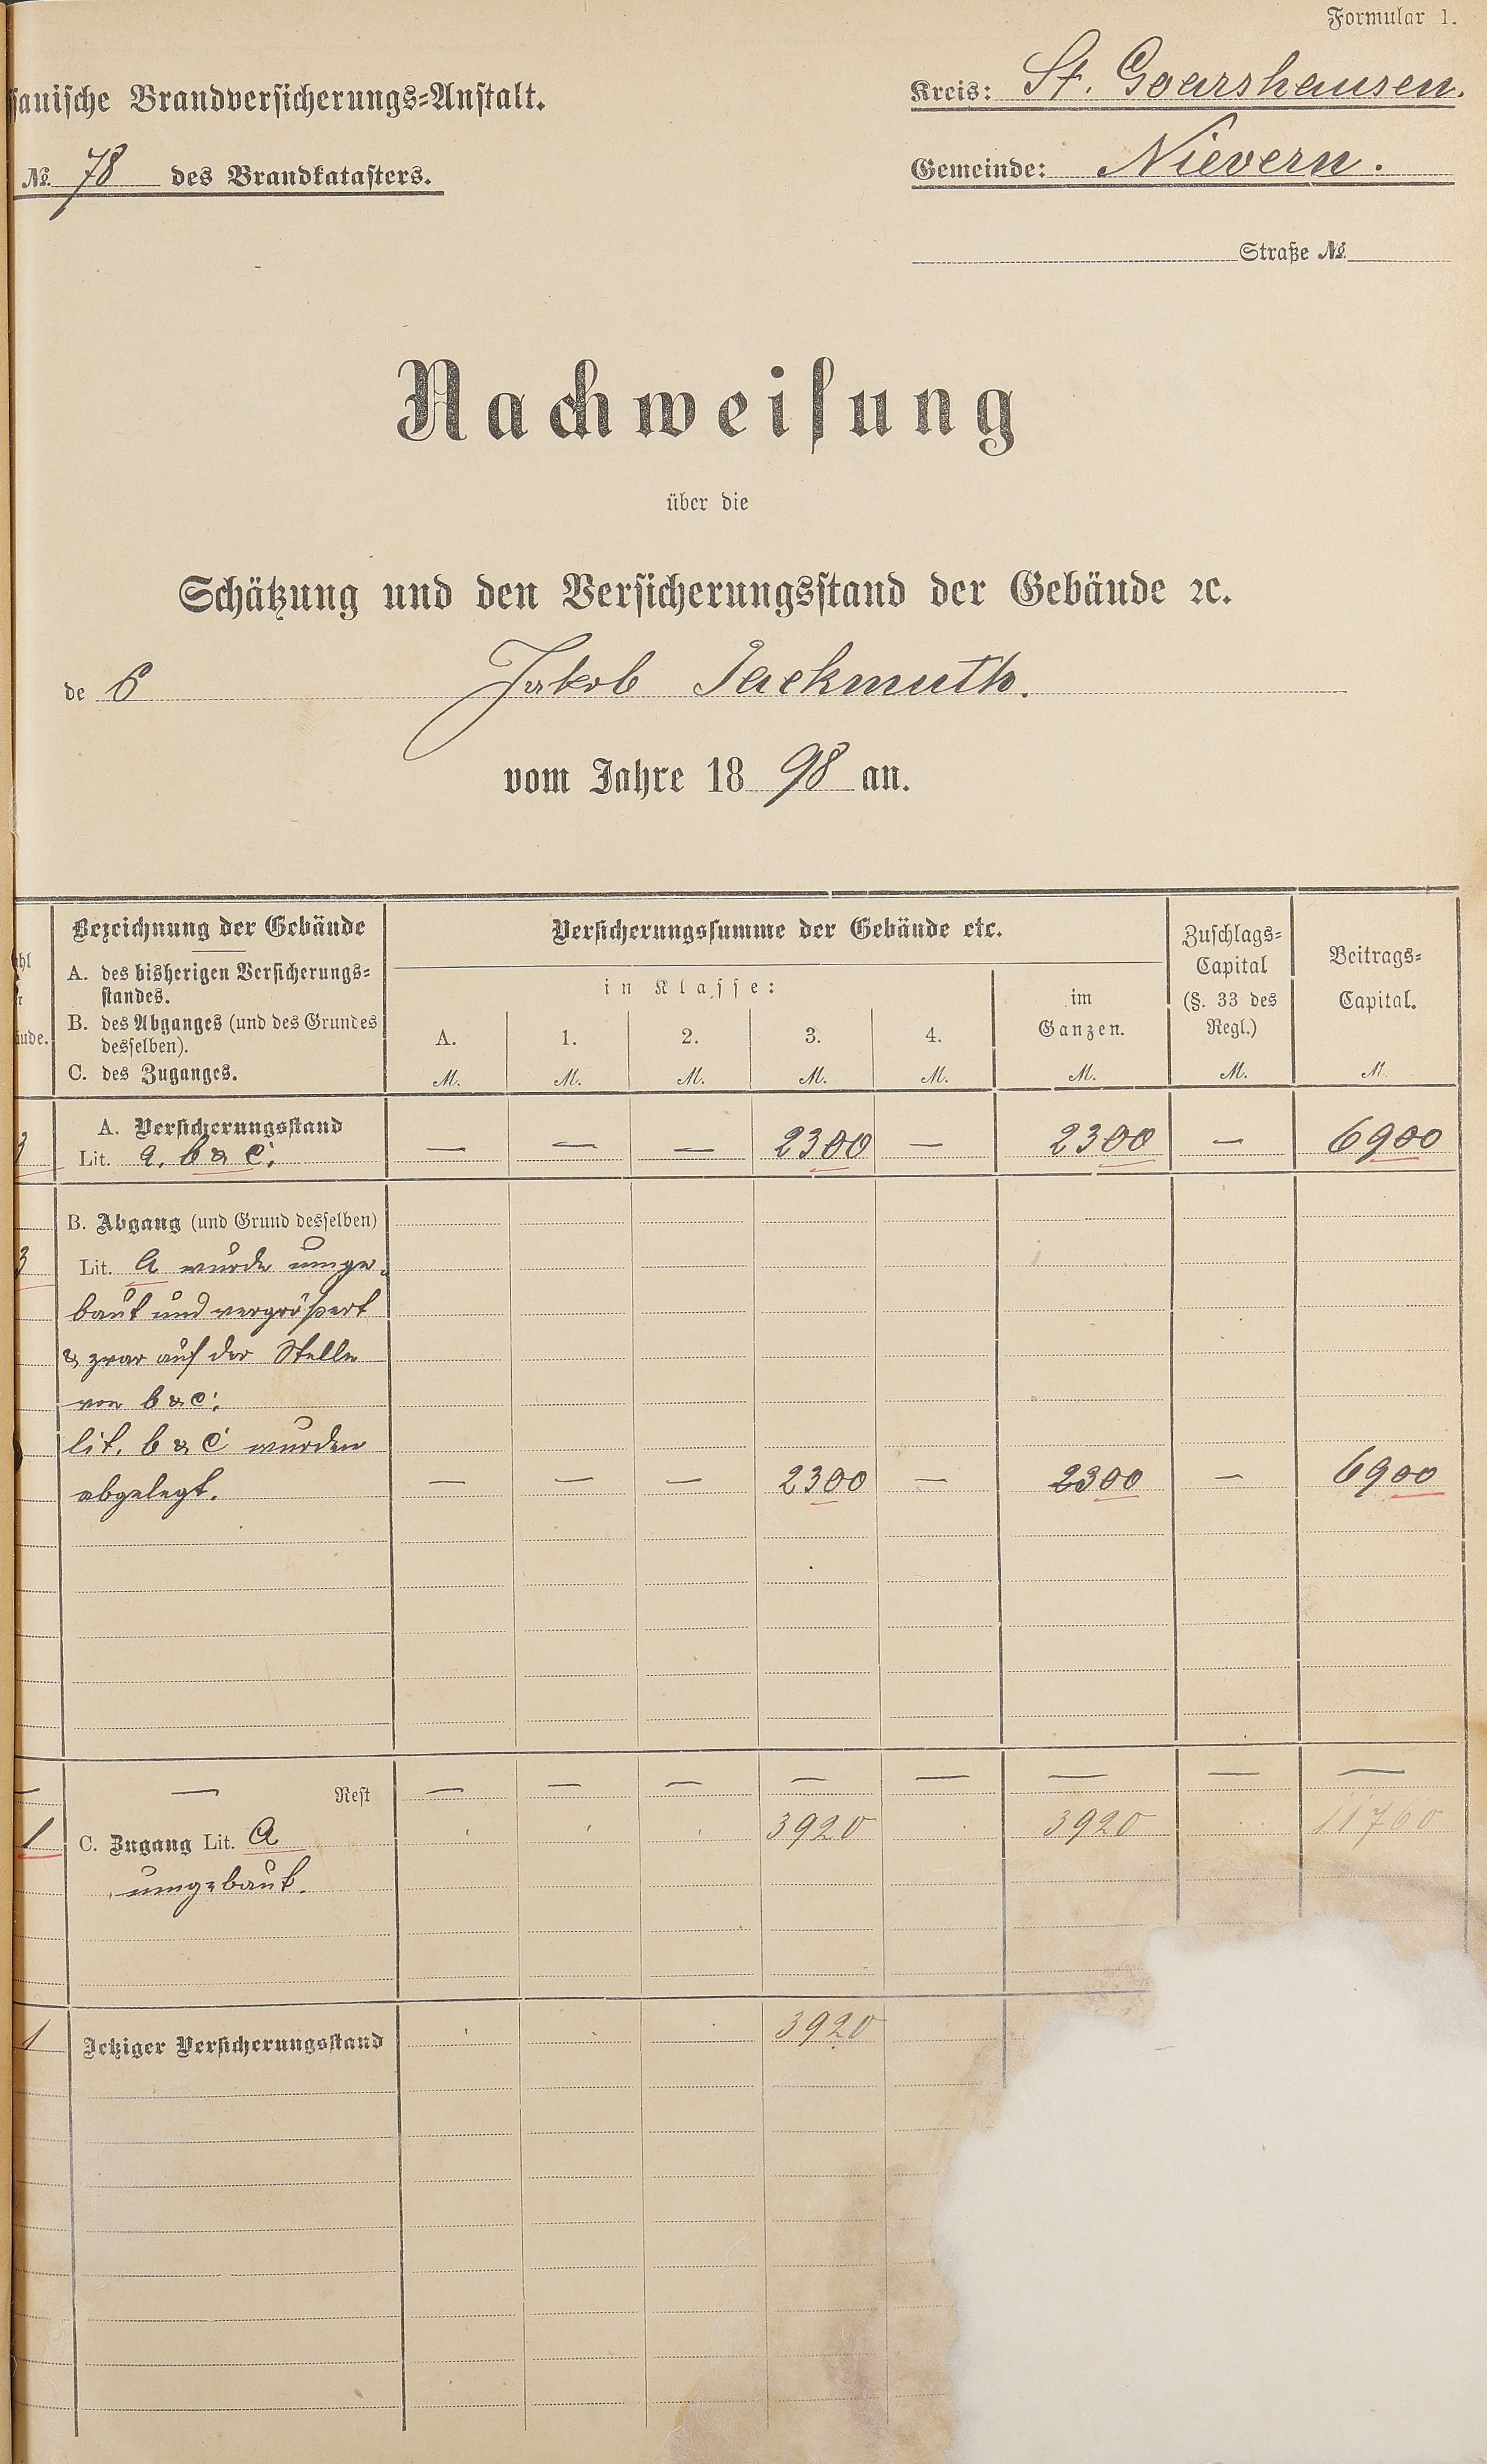 Formular 1.
sauische Brandversicherungs-Anstalt.
Kreis: St. Goarshausen.
№ 78 des Brandkatasters.
Gemeinde: Nievern.
Straße №
Nachweisung
über die
Schätzung und den Versicherungsstand der Gebäude ꝛc.
de s Jakob Jackmuth.
vom Jahre 1898 an.
Bezeichnung der Gebäude
A. des bisherigen Versicherungs-
standes.
B. des Abganges (und des Grundes
desselben).
C. des Zuganges.
Versicherungssumme der Gebäude etc.
in Klasse:
A. 1. 2. 3. 4.
im
Ganzen.
Zuschlags-
Capital
(§. 33 des
Regl.)
Beitrags-
Capital.
M. M. M. M. M. M. M. M.
A. Versicherungsstand
Lit. a. b & c. — — — 2300 — 2300 — 6900
B. Abgang (und Grund desselben)
3 Lit. a wurde umge-
baut und vergrößert
& zwar auf der Stelle
von b & c.
lit. b & c wurden
abgelegt. — — — 2300 — 2300 — 6900
— — Rest — — — — — — — —
1 C. Zugang Lit. a 3920 3920 11760
umgebaut.
1 Jetziger Versicherungsstand 3920